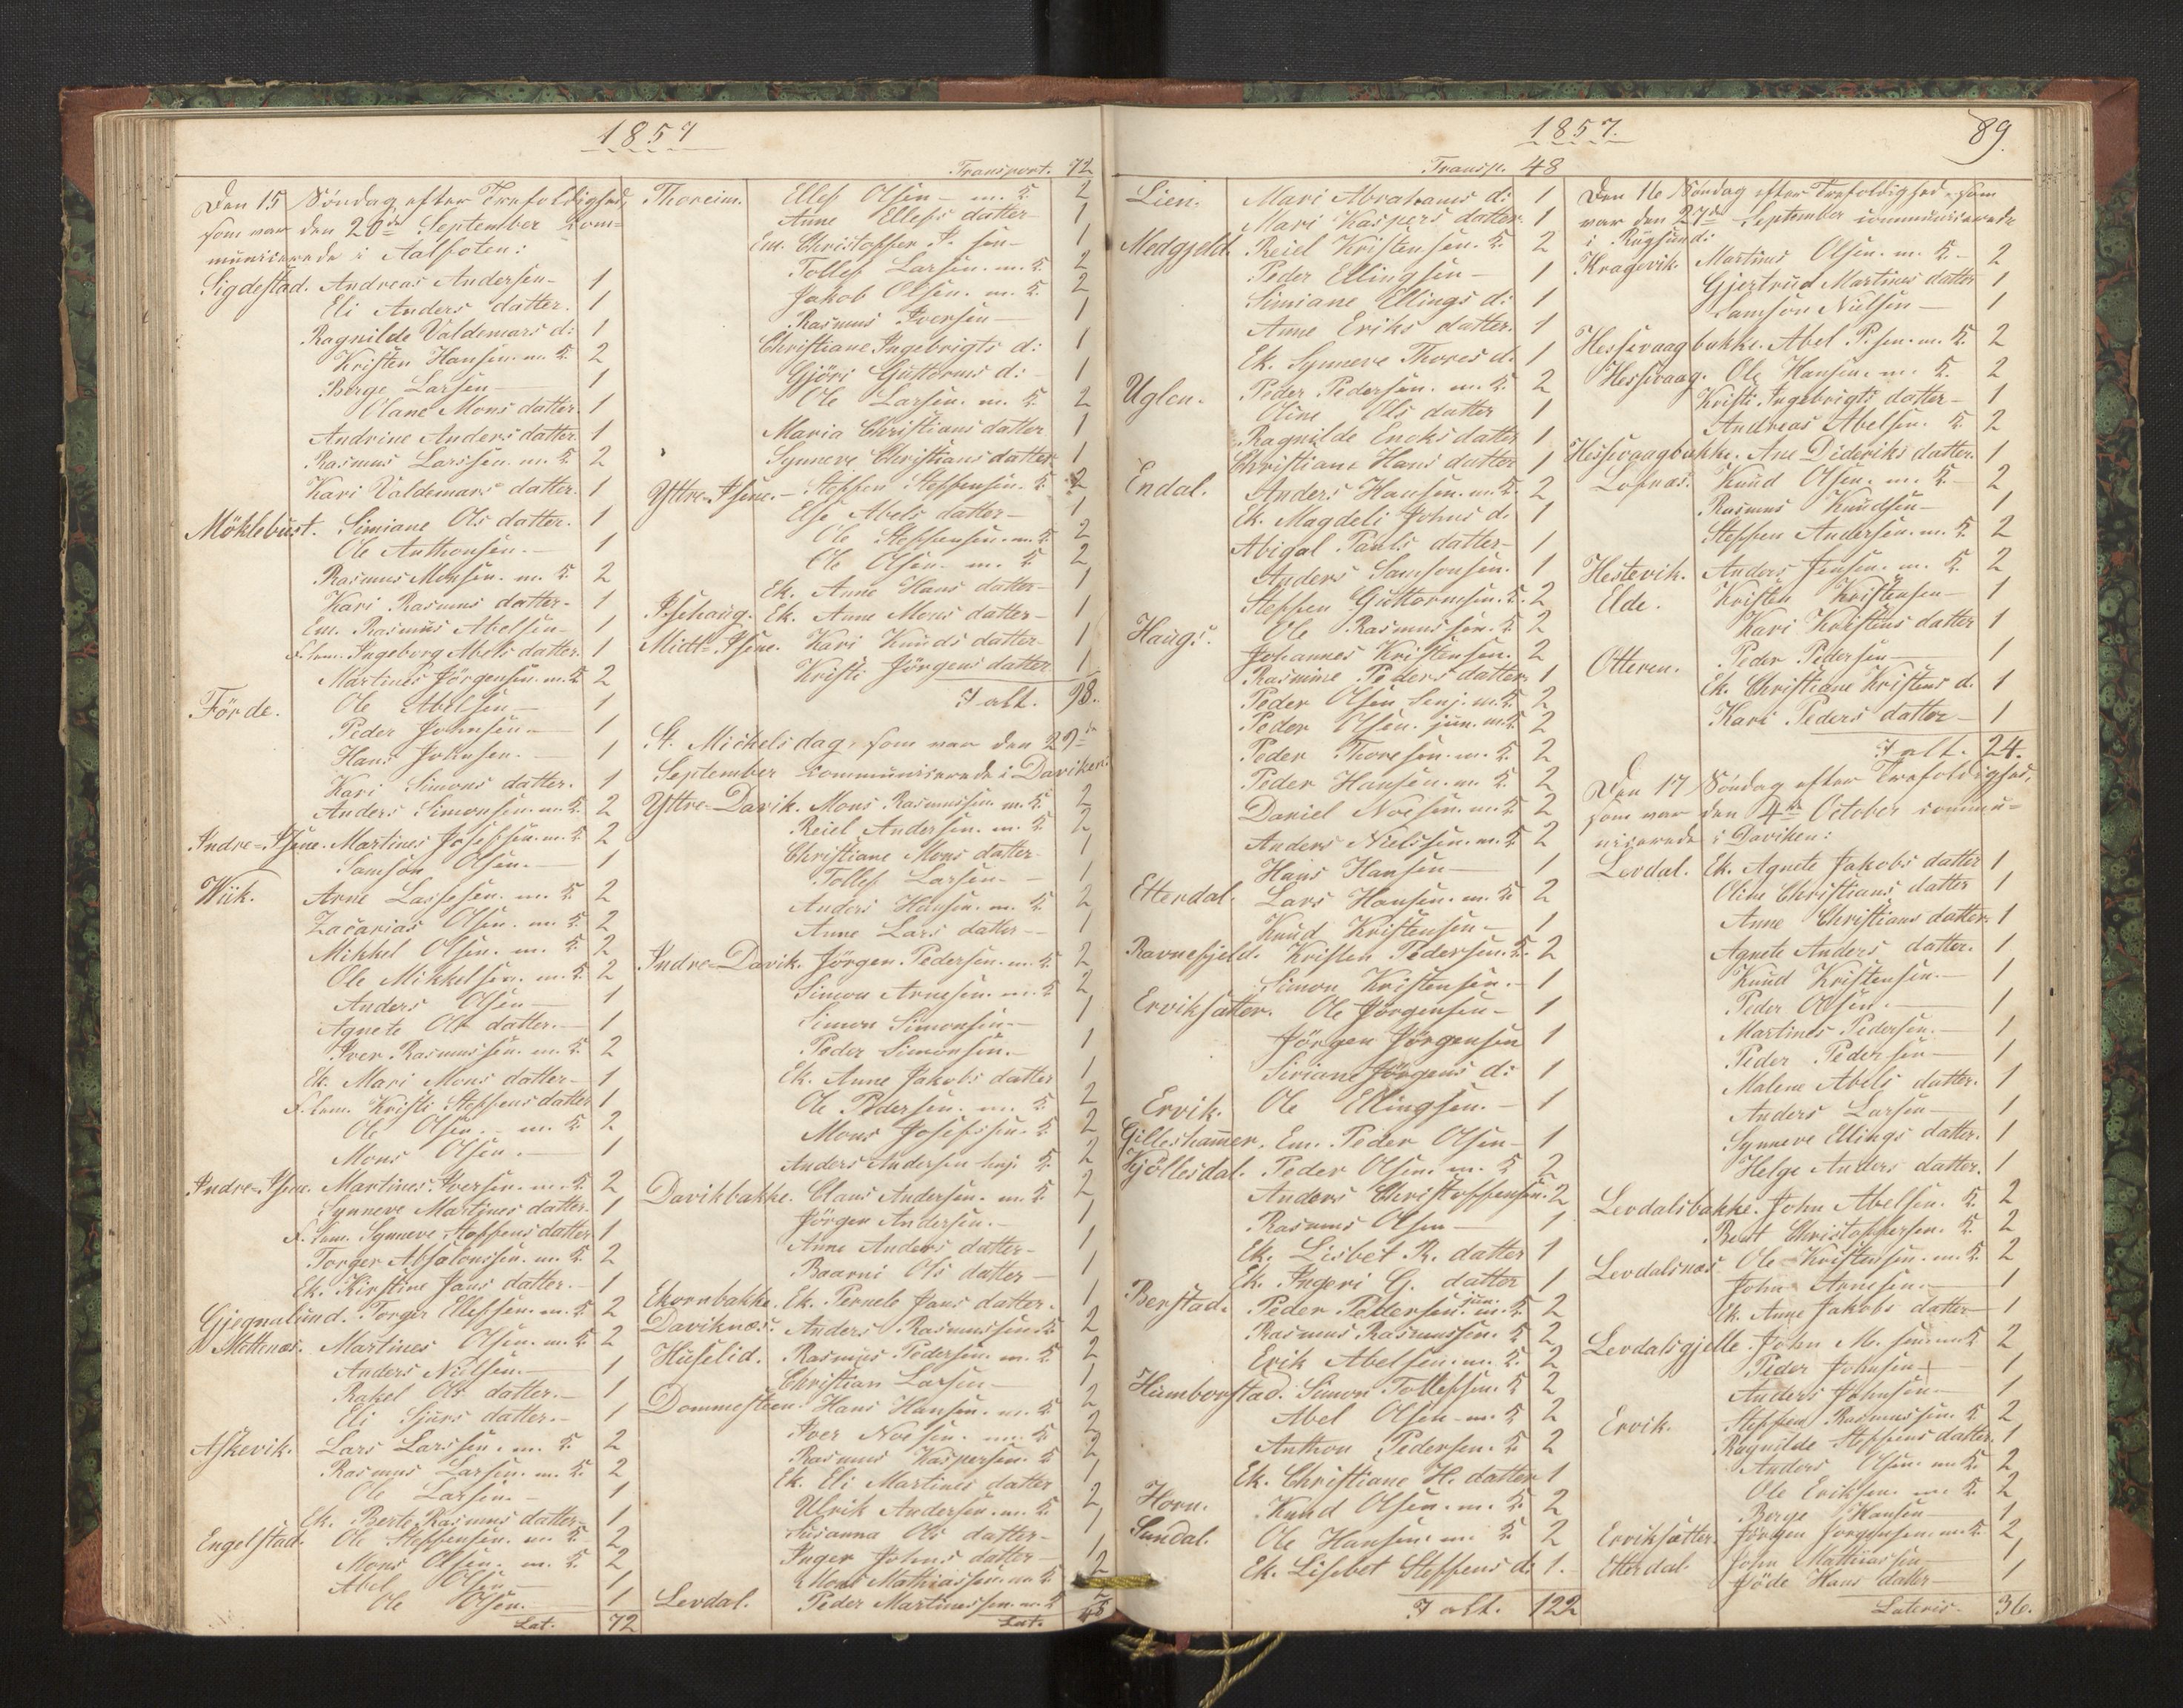 1857
Den 15 Søndag efter Trefoldighed,
som var den 20de September com=
municerede i Aalfoten:
Sigdestad. Andreas Andersen - 1
Eli Anders datter. 1
Ragnilde Valdemars d: 1
Kristen Hansen. m. K. 2
Børge Larsen - 1
Olane Mons datter. 1
Andrine Anders datter. 1
Rasmus Larssen. m. K. 2
Kari Valdemars datter. 1
Möklebust. Simiane Ols datter. 1
Ole Anthonsen. - 1
Rasmus Monsen. m. K. 2
Kari Rasmus datter. 1
Em. Rasmus Abelsen - 1
Ingeborg Abels datter. 1
Martines Jörgensen. m. K. 2
Förde. Ole Abelsen - 1
Peder Johnsen - 1
Hans Johnsen. 1
Kari Simons datter. 1
Anders Simonsen. m. K. 2
Indre=Isene. Martines Josefsen. m. K. 2
Samson Olsen. - 1
Wiik. Arne Lassesen. m. K. 2
Zacarias Olsen. m. K. 2
Mikkel Olsen. m. K. 2
Ole Mikkelsen. m. K. 2
Anders Olsen - 1
Agnete Ols datter. - 1
Iver Rasmussen. m. K. 2
Ek. Mari Mons datter - 1
Kristi Steffens datter 1
Ole Olsen. - m. K. 2
Mons Olsen. - 1
Indre=Isene. Martines Iversen. m. K. 2
Synneve Martines datter. 1
Synneve Steffens datter 1
Torger Absalonsen. m. K. 2
Ek. Kirstine Jans datter. - 1
Gjegnalund. Torger Ellefsen. m. K. 2
Mettenæs. Martines Olsen. m. K. 2
Anders Nielsen. - 1
Rakel Ols datter. - 1
Eli Sjurs datter. - 1
Askevik. Lars Larssen. m. K. 2
Rasmus Larsen. m. K. 2
Ole Larsen. - 1
Ek. Berte Rasmus datter - 1
Engelstad. Ole Steffensen. m. K. 2
Mons Olsen. m. K. 2
Abel Olsen - 1
Ole Olsen. - 1
Lat. 72
Transport. 72
Thoreim. Ellef Olsen - m. K. 2
Anne Ellefs datter - 1
Em. Christoffer P. sen - 1
Tollef Larsen. m. K. 2
Jakob Olsen. m. K. 2
Rasmus Iversen - 1
Christiane Ingebrigts d: 1
Gjöri Guttorms d: - 1
Ole Larsen. m. K. 2
Maria Christians datter 1
Synneve Christians datter 1
Yttre=Isene. - Steffen Steffensen. K. 2
Else Abels datter - 1
Ole Steffensen. m. K. 2
Ole Olsen. m. K. 2
Ek. Anne Hans datter - 1
Isehaug. Ek. Anne Mons datter - 1
Midt=Isene. Kari Knuds datter - 1
Kristi Jörgens datter 1
I alt. 98.
St. Mickelsdag, som var den 29de
September communicerede i Daviken:
Yttre=Davik. Mons Rasmussen. m. K. 2
Reiel Andersen. m. K. 2
Christiane Mons datter. 1
Tollef Larsen. - 1
Anders Hansen. m. K. 2
Anne Lars datter - 1
Indre=Davik. Jörgen Pedersen. m. K. 2
Simon Arnesen. m. K. 2
Simon Simonsen - 1
Peder Simonsen. - 1
Ek. Anne Jakobs datter 1
Ole Pedersen. m. K. 2
Mons Josefsen. K. 2
Anders Andersen senj. K. 2
Davikbakke. Claus Andersen. m. K. 2
Jörgen Andersen. - 1
Anne Anders datter - 1
Baarni Ols datter - 1
Ekornbakke. Ek. Pernele Jans datter. 1
Daviknæs. Anders Rasmussen. K. 2
Huselid. Rasmus Pedersen. m. K. 2
Christian Larsen - 1
Dommesteen. Hans Hansen. m. K. 2
Iver Noesen. m. K. 2
Rasmus Kaspersen. K. 2
Ek. Eli Martines datter 1
Ulrik Andersen. m. K. 2
Susanna Ols datter - 1
Inger Johns datter - 1
Mons Mathiassen. m. K. 2
Levdal. Peder Martinussen. m. K. 2
Lat. 48
1857.
89.
Transp. 48
Lien. Mari Abrahams d: 1
Mari Kaspers datter. 1
Medgjeld. Reiel Kristensen. K. 2
Peder Ellingsen - 1
Simiane Ellings d: 1
Anne Eriks datter. 1
Ek. Synneve Thores d. 1
Uglen. Peder Pedersen. m. K. 2
Oline Ols datter 1
Ragnilde Enoks datter 1
Christiane Hans datter 1
Endal. Anders Hansen. m. K. 2
Ek. Magdeli Johns d. 1
Abigal Pauls datter - 1
Anders Samsonsen. 1
Steffen Guttormsen. K. 2
Haugs. Ole Rasmussen. K. 2
Johannes Kristensen. 2
Rasmine Peders datter. 1
Peder Olsen senj. m. K. 2
Peder Olsen. jun. m. K. 2
Peder Thoresen. m. K. 2
Peder Hansen. m. K. 2
Daniel Noesen. m. K. 2
Anders Nielssen. m. K. 2
Hans Hansen - 1
Etterdal. Lars Hansen. m. K. 2
Knud Kristensen - 1
Ravnesfjeld. Kristen Pedersen. K. 2
Simon Kristensen. - 1
Erviksætter. Ole Jörgensen - 1
Jörgen Jörgensen 1
Siriane Jörgens d: 1
Ervik. Ole Ellingsen. - 1
Gilleshammer. Em. Peder Olsen - 1
Kjöllesdal. Peder Olsen. m. K. 2
Anders Christoffersen. 2
Rasmus Olsen - 1
Ek. Lisbet R. datter 1
Ek. Ingeri G. datter 1
Berstad. Peder Pedersen. jun. m. K. 2
Rasmus Rasmussen. K. 2
Erik Abelsen. m. K. 2
Humborstad. Simon Tollefsen. K. 2
Abel Olsen - m. K. 2
Anthon Pedersen. K. 2
Ek. Christiane H. datter 1
Horn. Knud Olsen. m. K. 2
Sundal. Ole Hansen m. K. 2
Ek. Lisebet Steffens d. 1.
I alt. 122
Den 16 Søndag efter Trefoldighed, som
var den 27de September communicerede
i Rügsund:
Kragevik. Martinus Olsen. m. K. - 2
Gjertrud Martines datter 1
Samson Nielsen - 1
Hessevaagbakke. Abel P. sen. m. K. 2
Hessevaag. Ole Hansen. m. K. 2
Kristi Ingebrigts datter - 1
Andreas Abelsen. K. 2
Hessevaagbakke. Ane Dideriks datter. 1
Lofnæs. Knud Olsen. m. K. - 2
Rasmus Knudsen - 1
Steffen Andersen. m. K. 2
Hestevik. Anders Jensen. m. K. 2
Elde. Kristen Kristensen - 1
Kari Kristens datter 1
Otteren. Peder Pedersen - 1
Ek. Christiane Kristens d. 1
Kari Peders datter - 1
I alt. 24.
Den 17 Søndag efter Trefoldighed,
som var den 4de October commu=
nicerede i Daviken:
Levdal. Ek. Agnete Jakobs datter 1
Oline Christians datter 1
Anne Christians datter. 1
Agnete Anders datter. 1
Knud Kristensen. - 1
Peder Olsen. - 1
Martines Pedersen. - 1
Peder Pedersen - 1
Malene Abels datter. 1
Anders Larsen - 1
Synneve Ellings datter. 1
Helge Anders datter. 1
Levdalsbakke. John Abelsen. K. 2
Bent Christoffersen. K. 2
Levdalsnæs. Ole Kristensen. m. K. 2
John Arnesen. - 1
Ek. Anne Jakobs datter - 1
Levdalsgjelle. John M. sen. m. K. 2
Peder Johnsen - 1
Anders Johnsen - 1
Ervik. Steffen Rasmussen. K. 2
Ragnilde Steffens datter. 1
Anders Olsen. m. K. 2
Ole Eriksen. m. K. 2
Børge Hansen - 1
Erviksætter. Jörgen Jörgensen. m. K. 2
Etterdal. John Mathiassen - 1
Jöde Hans datter - 1
Lateris. 36.